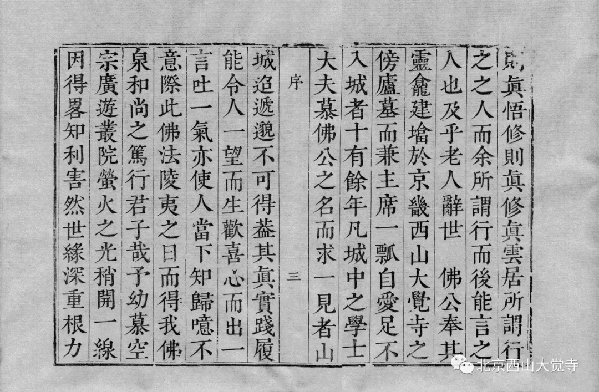 則眞悟修則眞修眞雲居所謂行
之之人而余所謂行而後能言之
人也及乎老人辭世　佛公奉其
靈龕建墖於京畿西山大覺寺之
傍廬墓而兼主席一瓢自愛足不
入城者十有餘年凡城中之學士
大夫慕佛公之名而求一見者山
序　三
城迢遞邈不可得葢其眞實踐履
能令人一望而生歡喜心而出一
言吐一氣亦使人當下知歸噫不
意際此佛法陵夷之日而得我佛
泉和尚之篤行君子哉予幼慕空
宗廣遊叢院螢火之光稍開一線
因得畧知利害然世緣深重根力
北京西山大觉寺